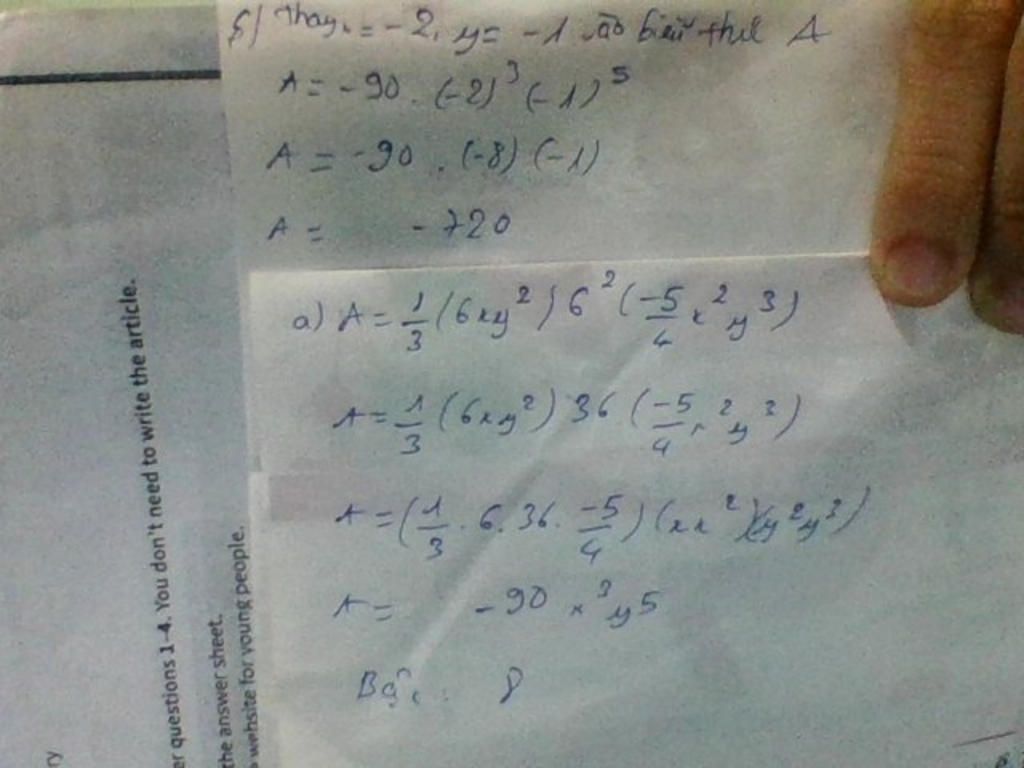 b) Thay x = -2, y = -1 vào biểu thức A
A = -90 . (-2)³ (-1)⁵
A = -90 . (-8) (-1)
A = -720
a) A = 1/3 (6xy²) 6² (-5/4 x²y³)
A = 1/3 (6xy²) 36 (-5/4 x²y³)
A = (1/3 . 6 . 36 . -5/4) (xx²)(y²y³)
A = -90 x³y5
Bậc : 8
er questions 1-4. You don't need to write the article.
the answer sheet.
website for young people.
ry